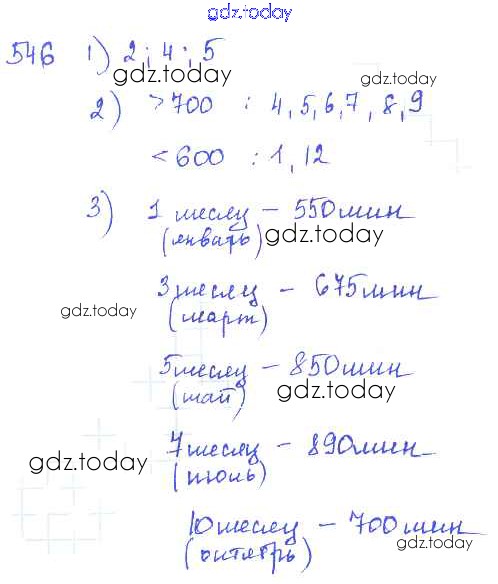 gdz.today
546 1) 2; 4; 5
gdz.today
gdz.today
2) >700 : 4, 5, 6, 7, 8, 9
<600 : 1, 12
3) 1 месяц – 550 мин
(январь) gdz.today
3 месяц – 675 мин
gdz.today (март)
5 месяц – 850 мин
(май) gdz.today
7 месяц – 890 мин
gdz.today (июль)
10 месяц – 700 мин
(октябрь) gdz.today